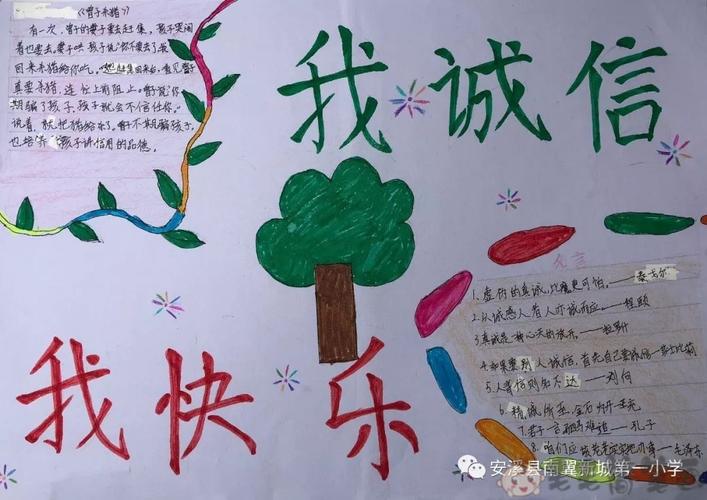 《曾子杀猪》
有一次，曾子的妻子要去赶集，孩子哭闹
着也要去，妻子哄孩子说"你不要去了，我
回来杀猪给你吃。"她赶集回来后，看见曾子
真要杀猪，连忙上前阻止。曾子说"你
欺骗了孩子，孩子就会不信任你。"
说着，就把猪给杀了。曾子不欺骗孩子，
也培养孩子讲信用的品德。
我诚信
我快乐
名言
1.虚伪的真诚，比魔鬼可怕。——泰戈尔
2.以诚感人者，人亦诚而应。——程颐
3.真诚是一种心灵的开放。——拉罗什
4.如果要别人诚信，首先自己要诚信——莎士比亚
5.人背信则名不达——刘向
6.精诚所至，金石为开——王充
7.君子一言驷马难追——孔子
8.——毛泽东
安溪县南翼新城第一小学